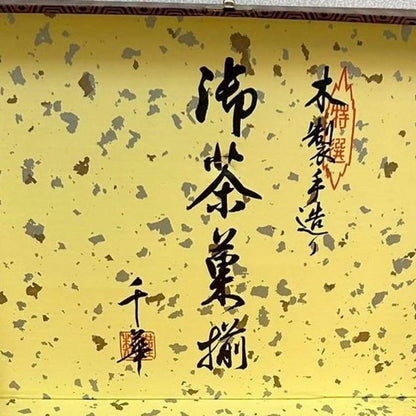 木製手造り
特選
御茶菓揃
千華